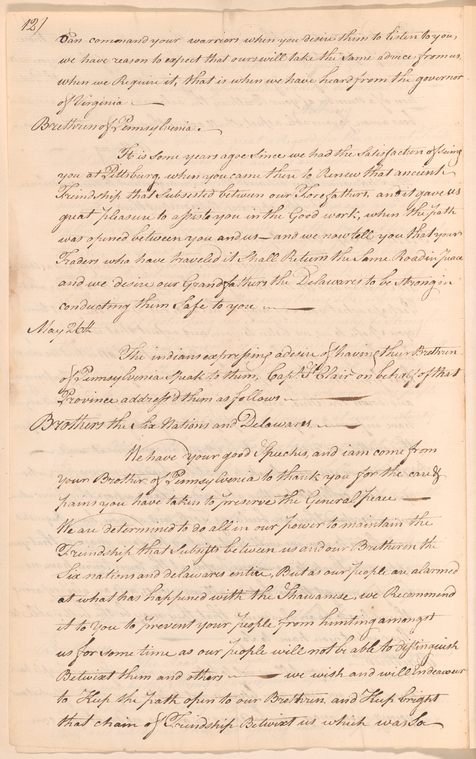 12/
Can command your warriors when you desire them to listen to you,
we have reason to expect that ours will take the same advice from us
when we Require it, that is when we have heard from the governor
of Virginia
Brethren of Pennsylvania.
It is some years agoe since we had the Satisfaction of Seeing
you at Pittsburg, when you came there to Renew that ancient
Friendship that Subsisted between our Forefathers, and it gave us
great pleasure to assist you in the Good work, when the path
was opened between you and us — and we now tell you that your
Traders who have traveled it Shall Return the Same Road in peace
and we desire our Grandfathers the Delawares to be strong in
conducting them Safe to you
May 26th
The indians expressing a desire of having their Brethren
of Pennsylvania Speak to them, Capt. St. Clair on behalf of that
Province address'd them as follows
Brothers the Six Nations and Delawares
We have your good Speeches, and i am come from
your Brother of Pennsylvania to thank you for the care &
pains you have taken to preserve the General peace —
We are determined to do all in our power to maintain the
Friendship that Subsists between us and our Bretheren the
Six nations and delawares entire, But as our people are alarmed
at what has happened with the Shawanese, we Recommend
it to you to prevent your people from hunting amongst
us for some time as our people will not be able to distinguish
Betwixt them and others — we wish and will Endeavour
to Keep the path open to our Brethren and Keep bright
that chain of Friendship Betwixt us which was So